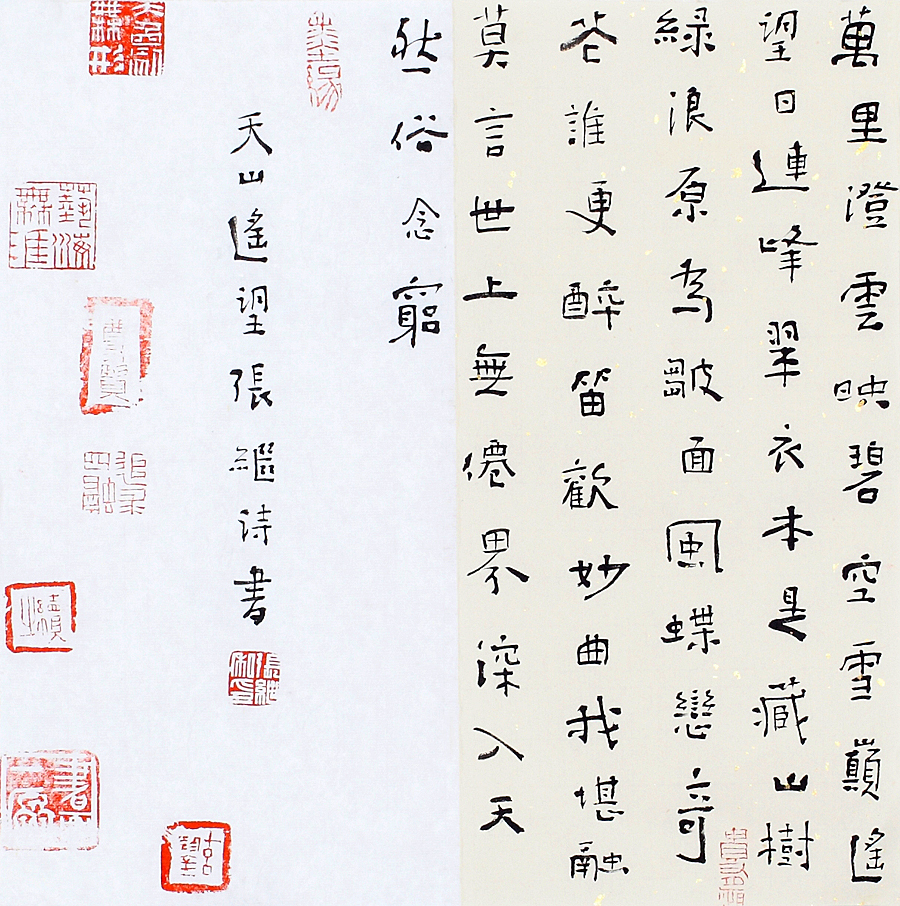 萬里澄雲映碧空雪巔遙
望日連峰翠衣本是藏山樹
綠浪原為皺面風蝶戀奇
花誰更醉笛歡妙曲我堪融
莫言世上無僊界深入天
然俗念窮
天山遙望張繼詩書